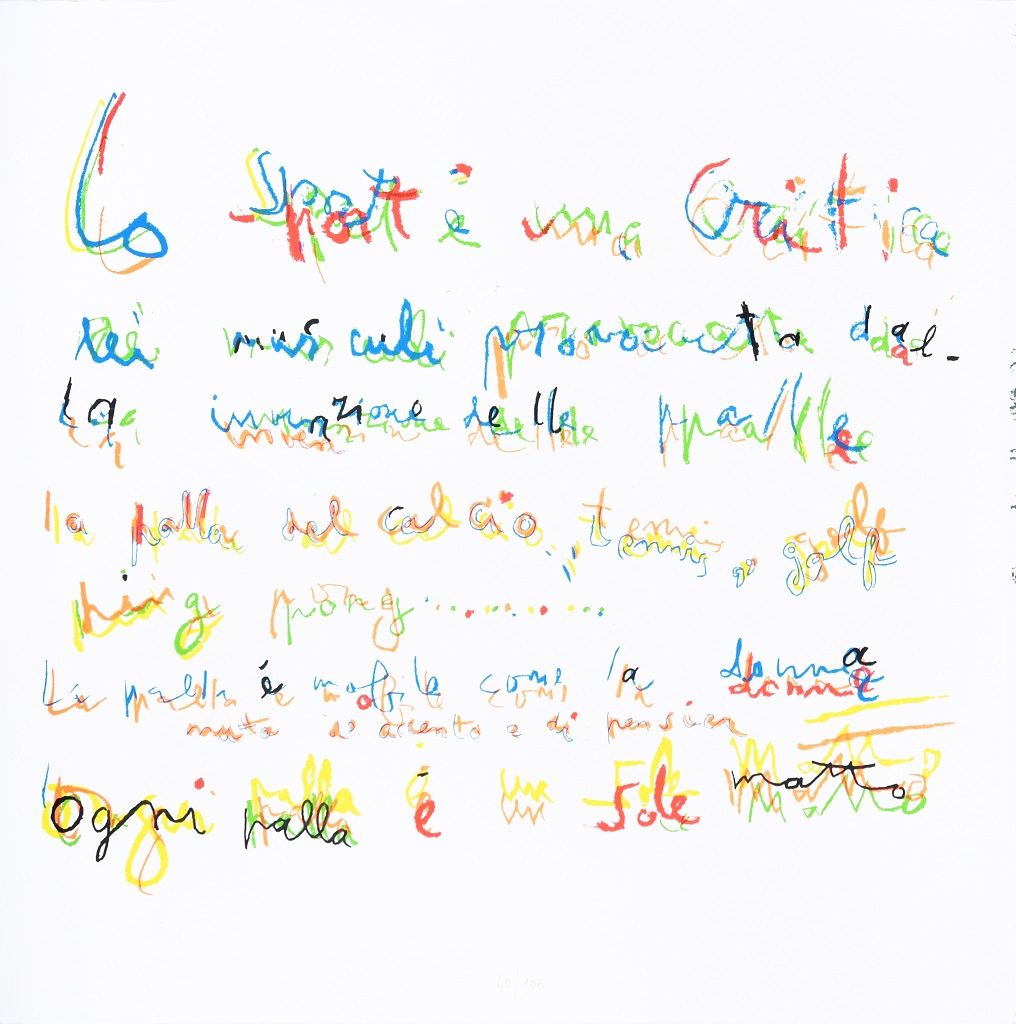 Lo Sport é una Critica
dei muscoli provocata dal-
la invenzione delle palle
la palla del calcio, tennis, golf
ping pong ..............
La palla é mobile come la donna
muta d'accento e di pensier
Ogni palla é un Sole matto
40/100